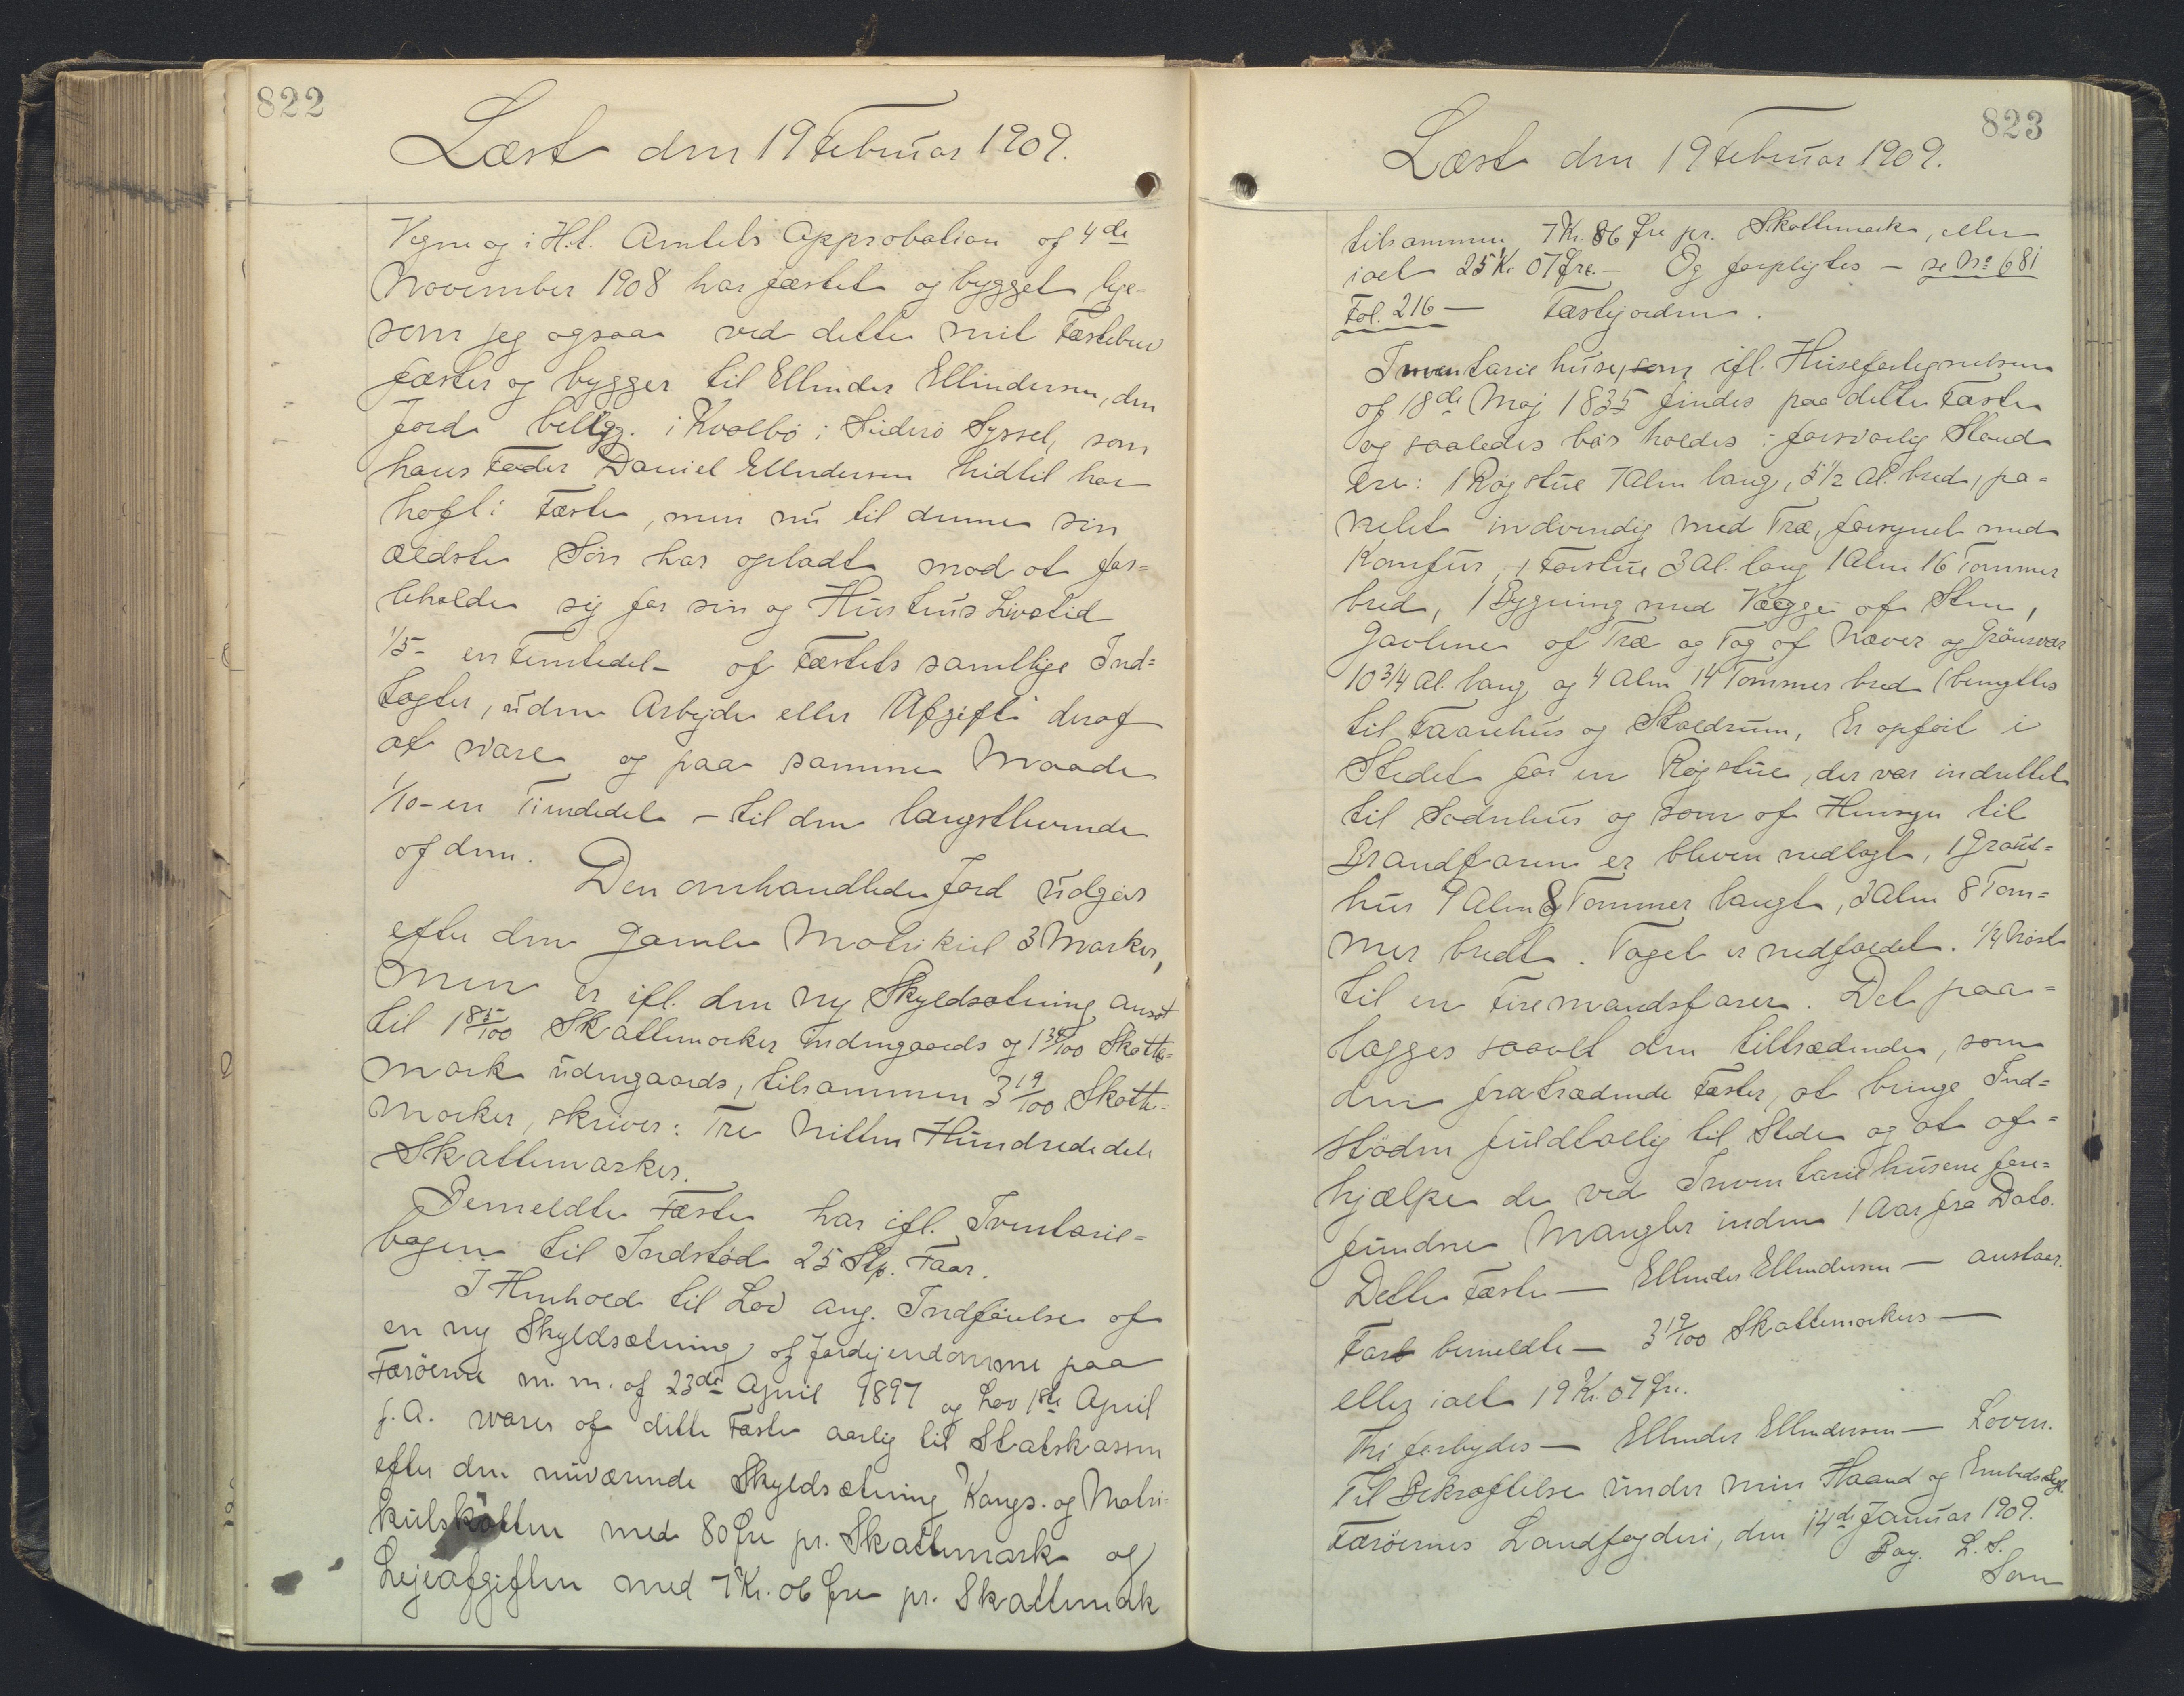 822
Læst den 19 Februar 1909.
Vegne og i H.t. Amtets Approbation af 4de
November 1908 har fæstet og bygget lige-
som jeg ogsaa ved dette mit Fæstebrev
fæster og bygger til Ellinder Ellindersen, den
Jord belligg. i Kvalbø i Suderø Syssel, som
hans Fader Daniel Ellindersen hidtil har
haft i Fæste, men nu til denne sin
ældste Søn har opladt mod at for=
beholde sig for sin og Hustrus Livstid
1/5 - en Femtedel - af Fæstets samtlige Ind=
tægter, uden Arbejde eller Afgift deraf
at svare og paa samme Maade
1/10 - en Tiendedel - til den længstlevende
af dem.
Den omhandlede Jord udgør
efter den gamle Matrikul 3 Marker,
men er ifl. den ny Skyldsætning ansat
til 1 85/100 Skattemarker indengaards og 1 34/100 Skatte=
mark udengaards, tilsammen 3 19/100 Skatte=
marker, skriver: Tre Nitten Hundrededele
Skattemarker.
Bemeldte Fæste har ifl. Inventarie=
bogen til Indstød 25 Stk. Faar.
I Henhold til Lov ang. Indførelse af
en ny Skyldsætning af Jordejendomme paa
Færøerne m. m. af 23de April 1897 og Lov 1ste April
f. A. svares af dette Fæste aarlig til Statskassen
efter den nuværende Skyldsætning Kongs- og Matri-
kulskatten med 80 Øre pr. Skattemark og
Lejeafgiften med 7 Kr. 06 Øre pr. Skattemark
823
Læst den 19 Februar 1909.
tilsammen 7 Kr. 86 Øre pr. Skattemark, eller
ialt 25 Kr. 07 Øre. - Og forpligtes - se No 681
Fol. 216 - Fæstejorden.
Inventariehuse, som ifl. Husefortegnelsen
af 18de Maj 1835 findes paa dette Fæste
og saaledes bør holdes i forsvarlig Stand
ere: 1 Røgstue 7 Alen lang, 5 1/2 Al. bred, pa=
nelet indvendig med Træ, forsynet med
Komfur, 1 Forstue 3 Al. lang 1 Alen 16 Tommer
bred, 1 Bygning med Vægge af Sten,
Gavlene af Træ og Tag af Næver og Grønsvær
10 3/4 Al. lang og 4 Alen 14 Tommer bred (benyttes
til Faarehus og Staldrum, Er opført i
Stedet for en Røgstue, der var indrettet
til Sodnhus og som af Hensyn til
Brandfaren er bleven nedlagt, 1 Grout=
hus 9 Alen 8 Tommer langt, 3 Alen 8 Tom=
mer bredt. Taget er nedfaldet. 1/4 Nøst
til en Firemandsfarer. Det paa=
lægges saavel den tiltrædende, som
den fratrædende Fæster, at bringe Ind=
støden fuldtallig til Stede og at af=
hjælpe de ved Inventariehusene fore=
fundne Mangler inden 1 Aar fra Dato.
Dette Fæste - Ellinder Ellindersen - anstaar.
For bemeldte - 3 19/100 Skattemarkers -
eller ialt 19 Kr. 07 Øre.
Thi forbydes - Ellinder Ellindersen - Loven.
Til Bekræftelse under min Haand og Embeds Segl.
Færøernes Landfogderi, den 14de Januar 1909.
Bay. L. S.
Som